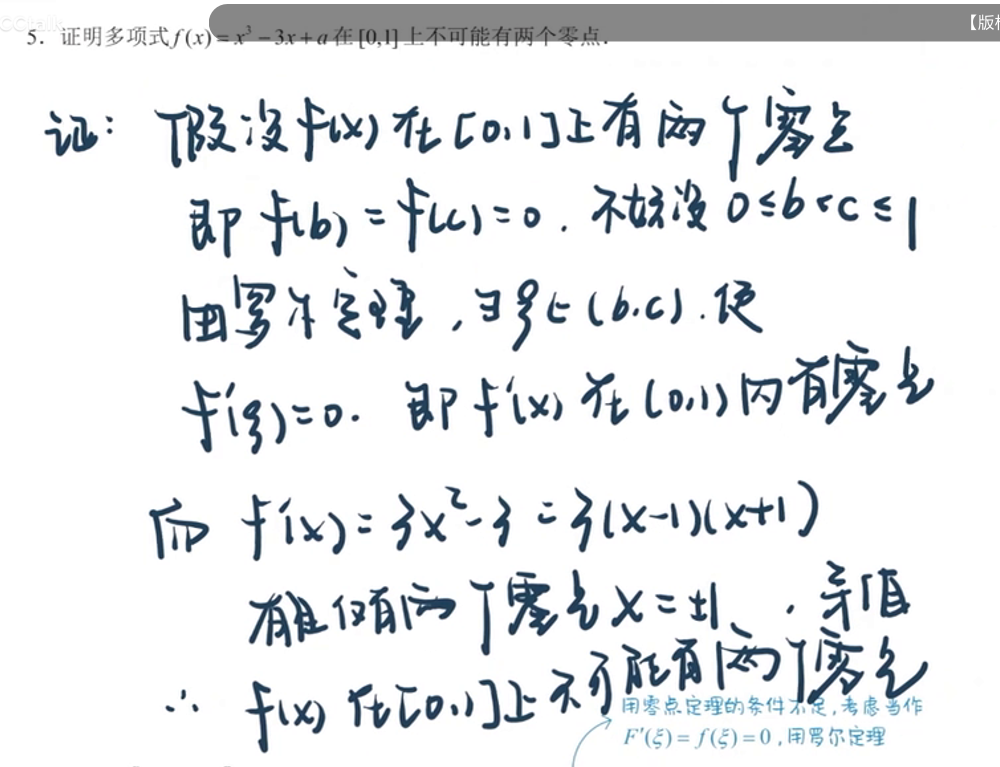 CCtalk
【版
5. 证明多项式 f(x) = x³ − 3x + a 在 [0,1] 上不可能有两个零点.
证: 假设 f(x) 在 [0,1] 上有两个零点
即 f(b) = f(c) = 0. 不妨设 0 ≤ b < c ≤ 1
由罗尔定理, ∃ξ∈(b,c). 使
f'(ξ)=0. 即 f'(x) 在 (0,1) 内有零点
而 f'(x) = 3x² - 3 = 3(x-1)(x+1)
有且仅有两个零点 x = ±1. 矛盾
∴ f(x) 在 [0,1] 上不可能有两个零点
用零点定理的条件不足,考虑当作
F'(ξ) = f(ξ) = 0 ,用罗尔定理